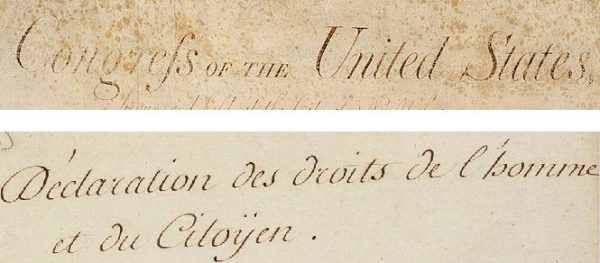 Congreſs OF THE United States,
Déclaration des droits de l'homme
et du Citoÿen.